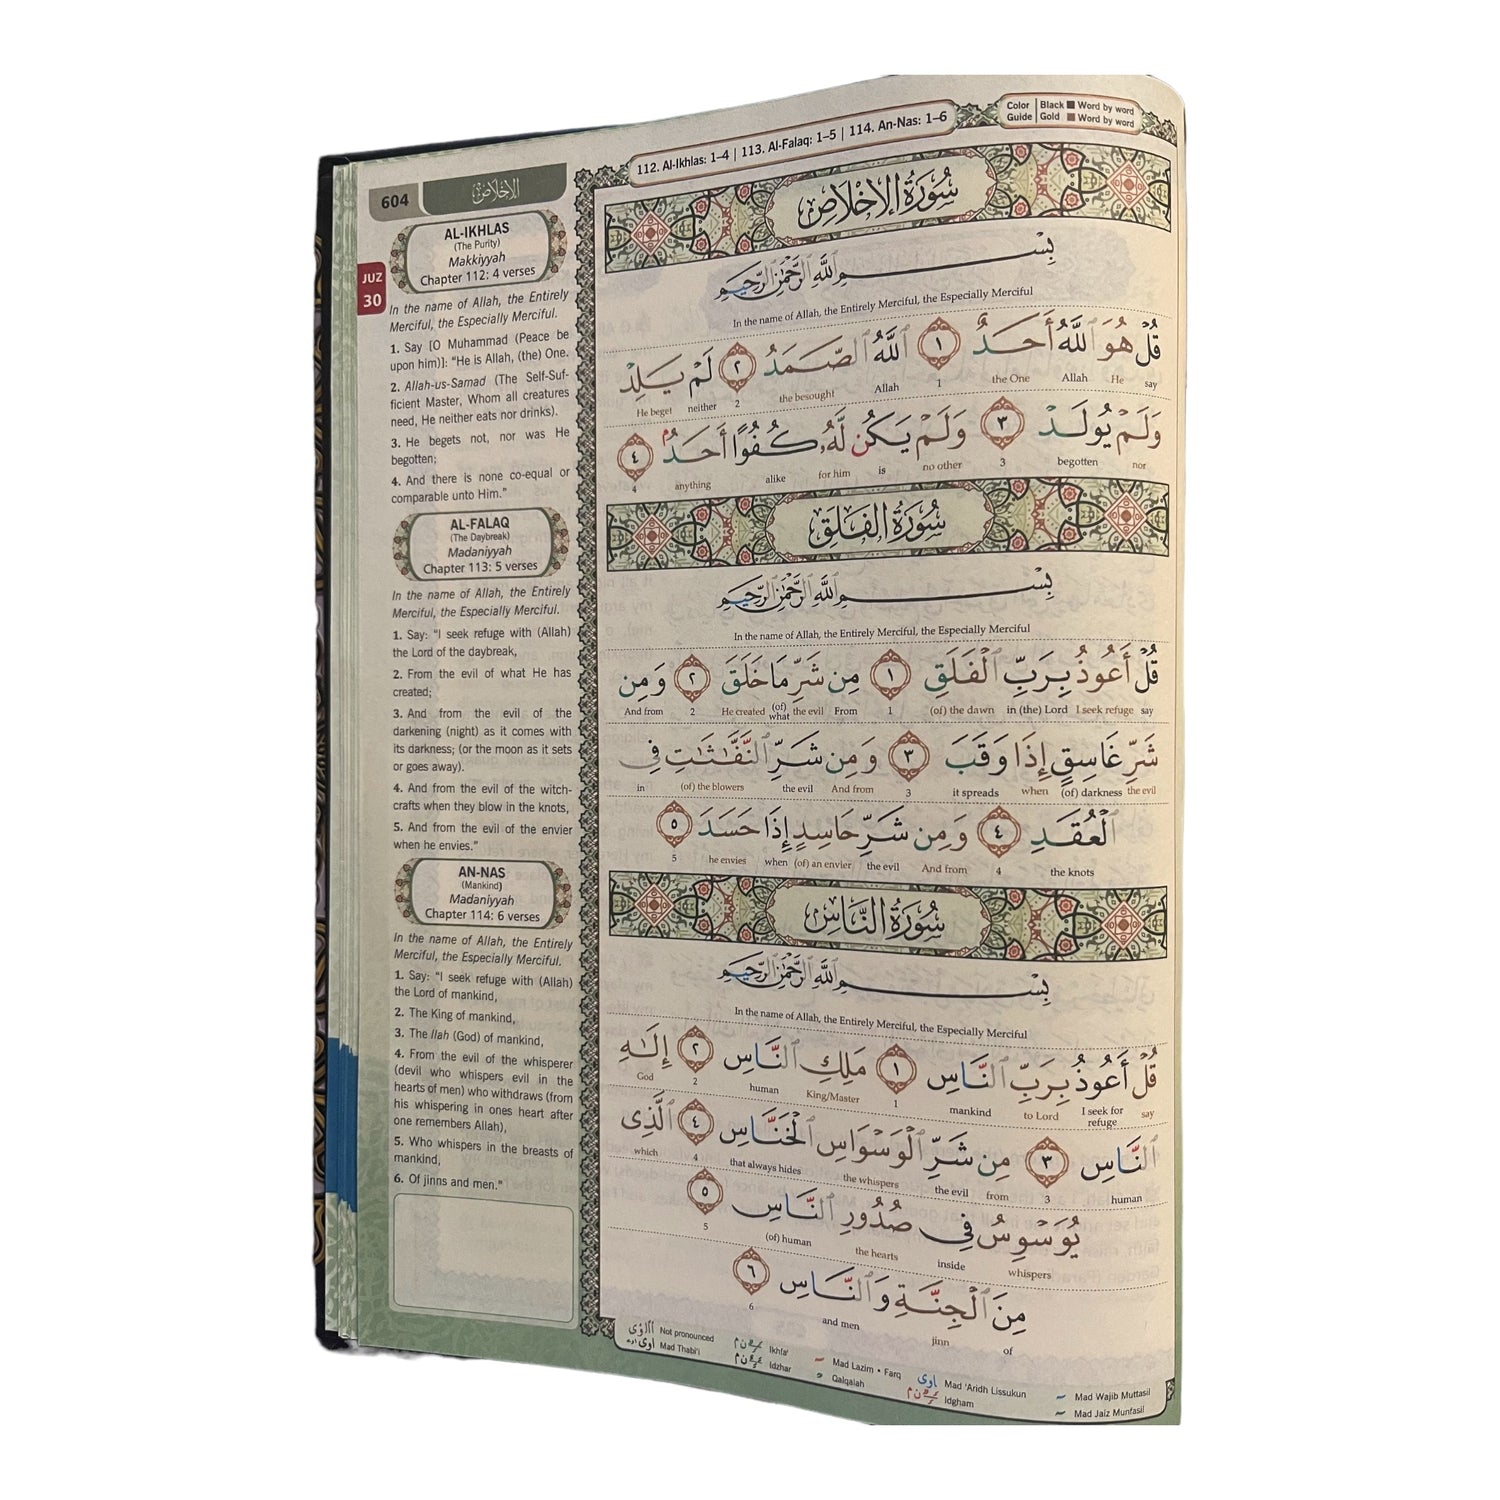 604
الإخلاص
112. Al-Ikhlas: 1–4 | 113. Al-Falaq: 1–5 | 114. An-Nas: 1–6
Color Guide | Black Word by word
Gold Word by word
JUZ
30
AL-IKHLAS
(The Purity)
Makkiyyah
Chapter 112: 4 verses
In the name of Allah, the Entirely
Merciful, the Especially Merciful.
1. Say [O Muhammad (Peace be
upon him)]: “He is Allah, (the) One.
2. Allah-us-Samad (The Self-Suf-
ficient Master, Whom all creatures
need, He neither eats nor drinks).
3. He begets not, nor was He
begotten;
4. And there is none co-equal or
comparable unto Him.”
AL-FALAQ
(The Daybreak)
Madaniyyah
Chapter 113: 5 verses
In the name of Allah, the Entirely
Merciful, the Especially Merciful.
1. Say: “I seek refuge with (Allah)
the Lord of the daybreak,
2. From the evil of what He has
created;
3. And from the evil of the
darkening (night) as it comes with
its darkness; (or the moon as it sets
or goes away).
4. And from the evil of the witch-
crafts when they blow in the knots,
5. And from the evil of the envier
when he envies.”
AN-NAS
(Mankind)
Madaniyyah
Chapter 114: 6 verses
In the name of Allah, the Entirely
Merciful, the Especially Merciful.
1. Say: “I seek refuge with (Allah)
the Lord of mankind,
2. The King of mankind,
3. The Ilah (God) of mankind,
4. From the evil of the whisperer
(devil who whispers evil in the
hearts of men) who withdraws (from
his whispering in ones heart after
one remembers Allah),
5. Who whispers in the breasts of
mankind,
6. Of jinns and men.”
سُورَةُ الإِخْلَاصِ
بِسْمِ ٱللَّهِ ٱلرَّحْمَٰنِ ٱلرَّحِيمِ
In the name of Allah, the Entirely Merciful, the Especially Merciful
قُلْ هُوَ ٱللَّهُ أَحَدٌ ١ ٱللَّهُ ٱلصَّمَدُ ٢ لَمْ يَلِدْ
say He Allah the One 1 Allah the besought 2 neither He beget
وَلَمْ يُولَدْ ٣ وَلَمْ يَكُن لَّهُۥ كُفُوًا أَحَدٌۢ ٤
nor begotten 3 no other is for him alike anything 4
سُورَةُ الفَلَقِ
بِسْمِ ٱللَّهِ ٱلرَّحْمَٰنِ ٱلرَّحِيمِ
In the name of Allah, the Entirely Merciful, the Especially Merciful
قُلْ أَعُوذُ بِرَبِّ ٱلْفَلَقِ ١ مِن شَرِّ مَا خَلَقَ ٢ وَمِن
say I seek refuge in (the) Lord (of) the dawn 1 From the evil (of) what He created 2 And from
شَرِّ غَاسِقٍ إِذَا وَقَبَ ٣ وَمِن شَرِّ ٱلنَّفَّٰثَٰتِ فِى
the evil (of) darkness when it spreads 3 And from the evil (of) the blowers in
ٱلْعُقَدِ ٤ وَمِن شَرِّ حَاسِدٍ إِذَا حَسَدَ ٥
the knots 4 And from the evil (of) an envier when he envies 5
سُورَةُ النَّاسِ
بِسْمِ ٱللَّهِ ٱلرَّحْمَٰنِ ٱلرَّحِيمِ
In the name of Allah, the Entirely Merciful, the Especially Merciful
قُلْ أَعُوذُ بِرَبِّ ٱلنَّاسِ ١ مَلِكِ ٱلنَّاسِ ٢ إِلَٰهِ
say I seek for refuge to Lord mankind 1 King/Master human 2 God
ٱلنَّاسِ ٣ مِن شَرِّ ٱلْوَسْوَاسِ ٱلْخَنَّاسِ ٤ ٱلَّذِى
human 3 from the evil the whispers that always hides 4 which
يُوَسْوِسُ فِى صُدُورِ ٱلنَّاسِ ٥
whispers inside the hearts (of) human 5
مِنَ ٱلْجِنَّةِ وَٱلنَّاسِ ٦
of jinn and men 6
Not pronounced
Mad Thabi'i
Ikhfa'
Idzhar
Mad Lazim • Farq
Qalqalah
Mad 'Aridh Lissukun
Idgham
Mad Wajib Muttasil
Mad Jaiz Munfasil